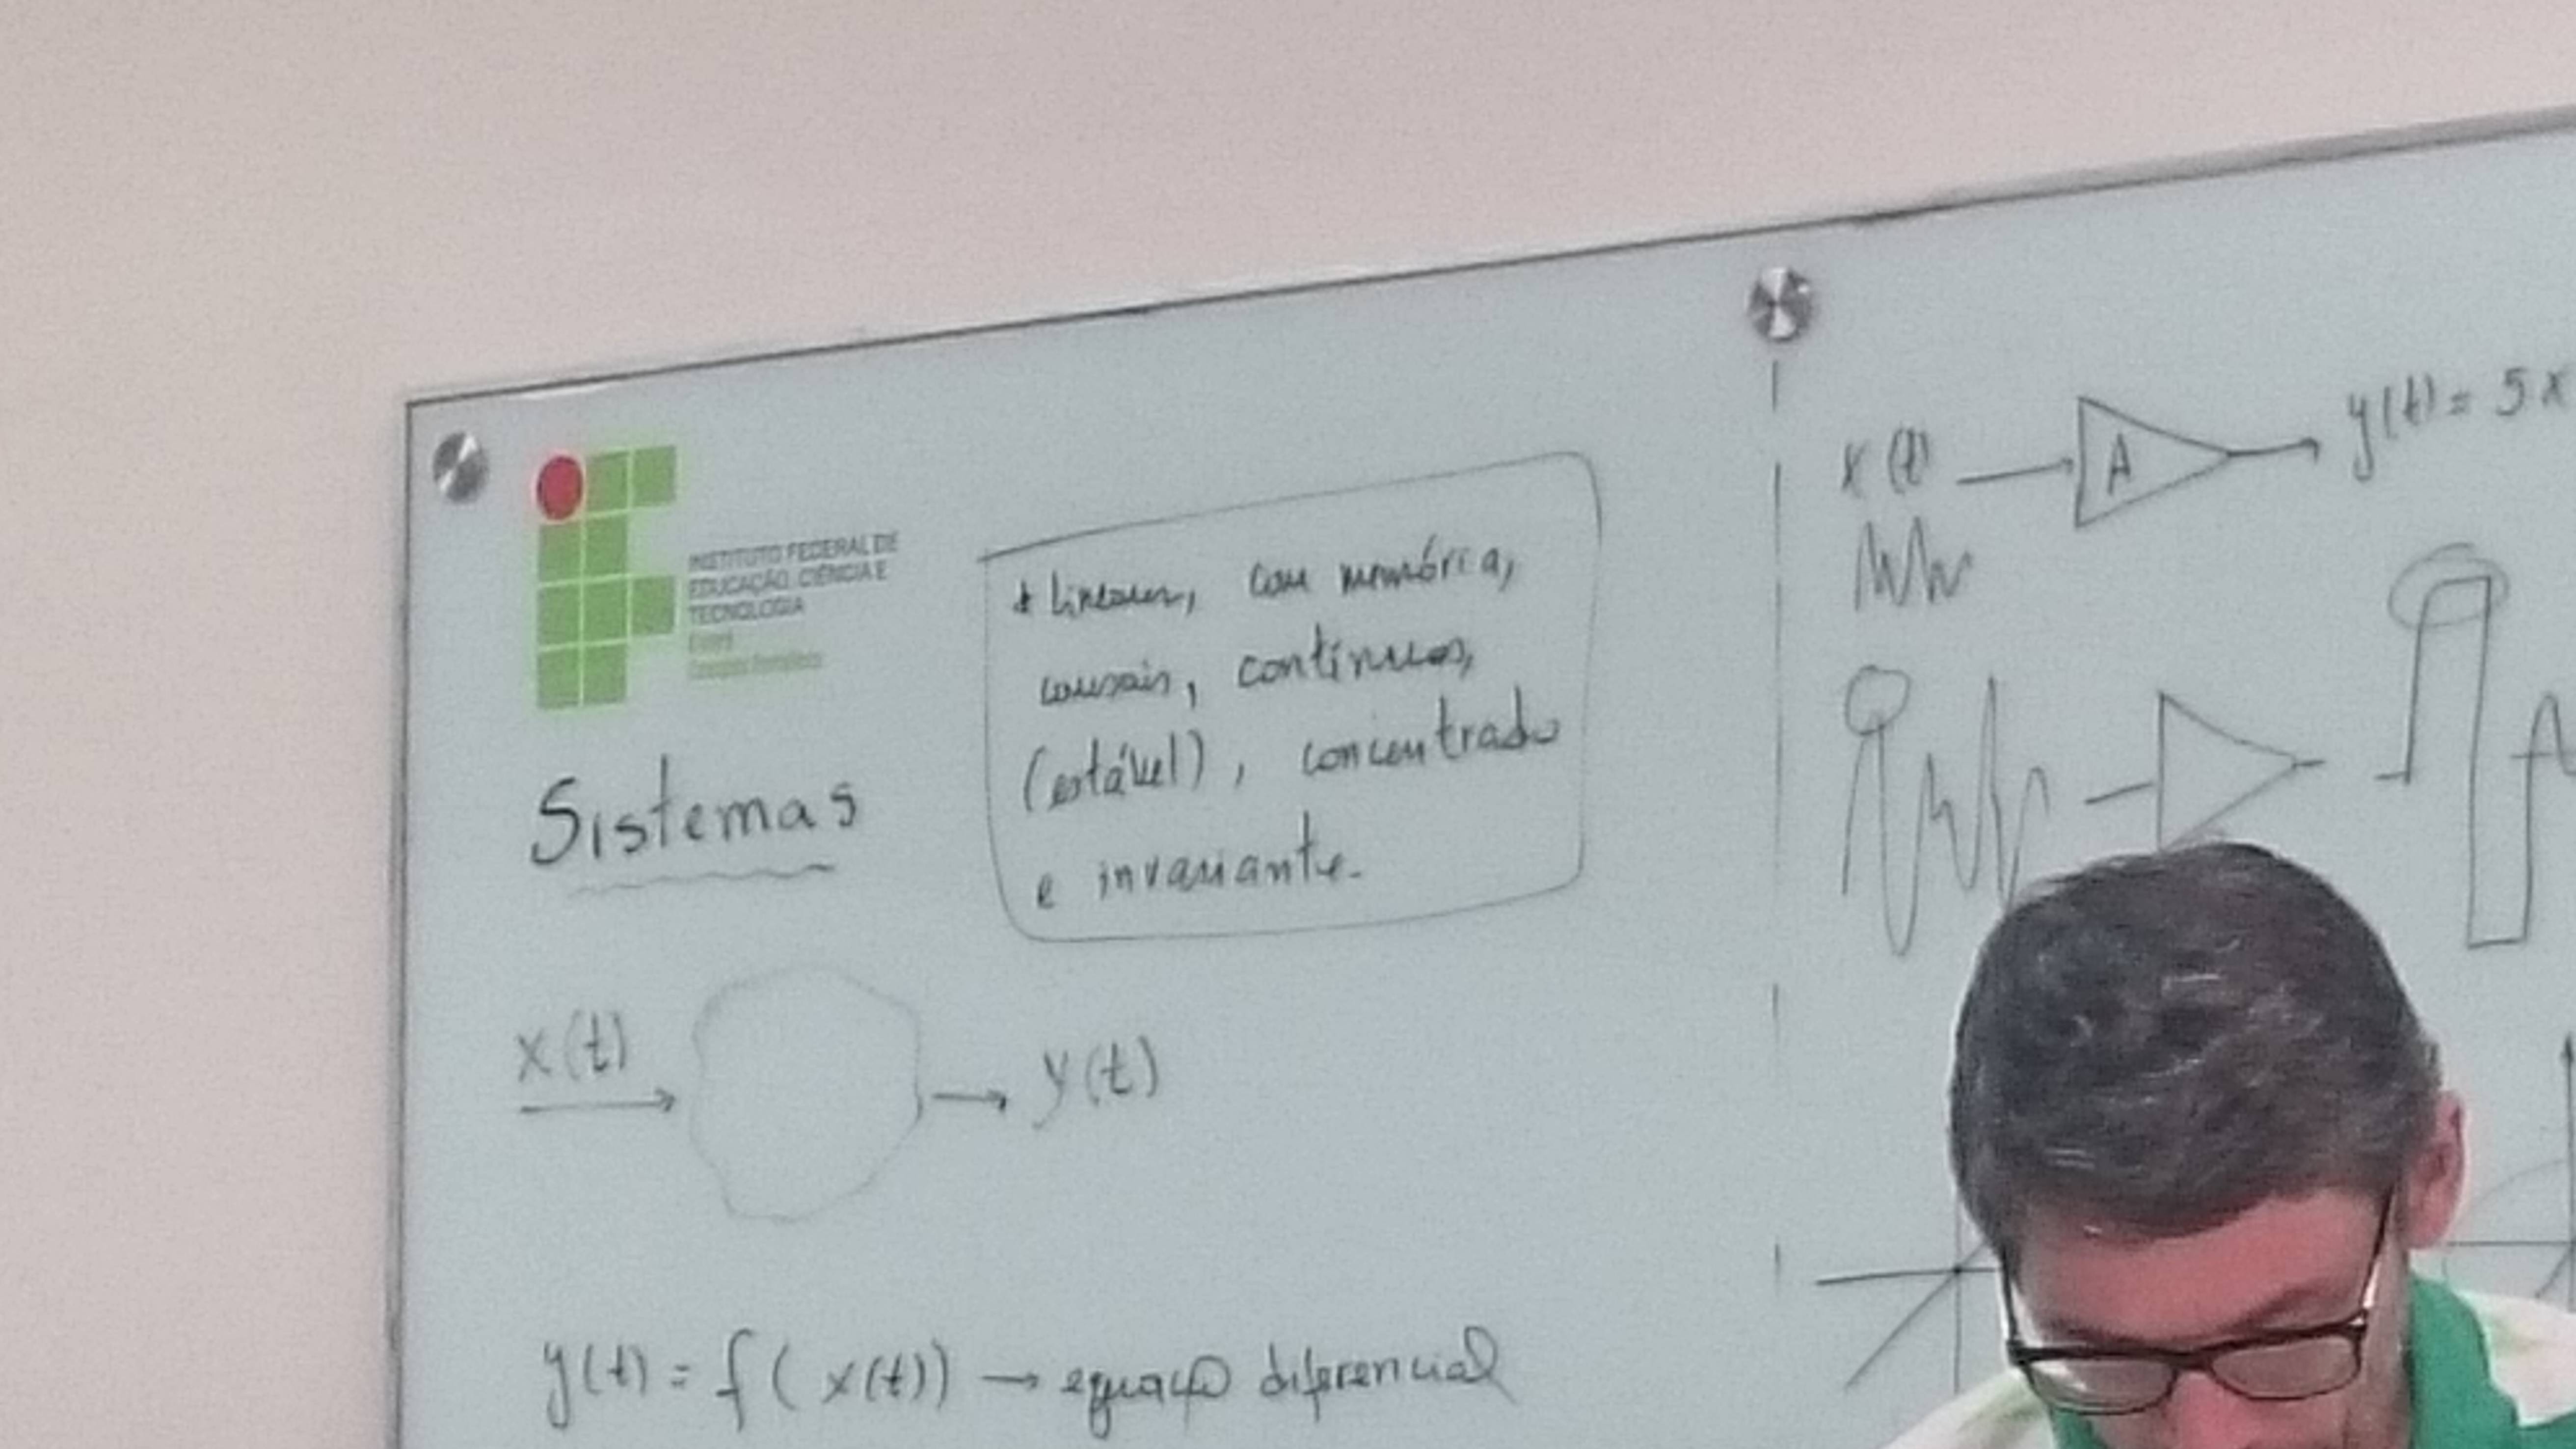 INSTITUTO FEDERAL DE
EDUCAÇÃO, CIÊNCIA E
TECNOLOGIA
Sistemas
* Lineares, com memória,
causais, contínuos,
(estável), concentrado
e invariante.
x(t)
y(t)
y(t) = f( x(t)) → equação diferencial
x(t)
A
y(t) = 5x